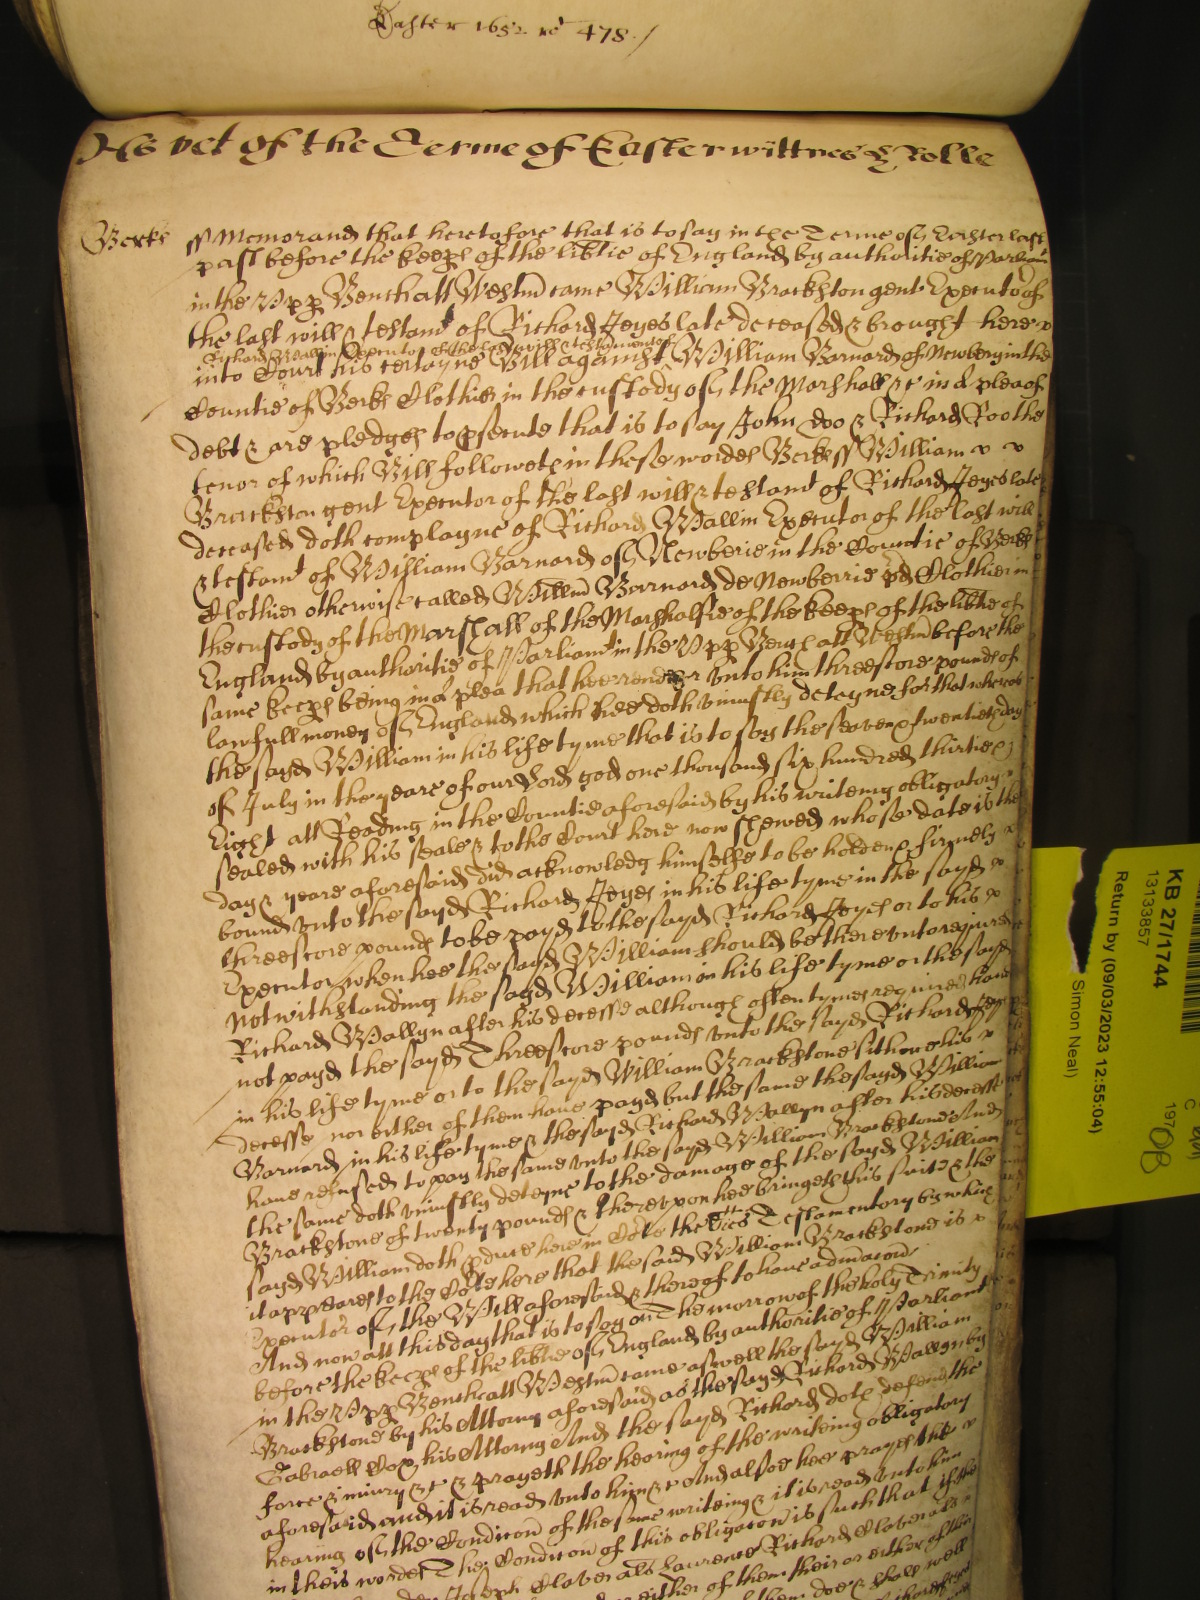 Easter 1652 ro 478 /
As yet of the Terme of Easter wittnes H Rolle
Berks ss Memorand that heretofore that is to say in the Terme of Easter last
past before the keeps of the libtie of England by authoritie of Parliam
in the Upp Bench att Westm came William Brackston gent Executor of
the last will & testamt of Richard Jeyes late deceased & brought here
Richard Wallin Executor of the last will & testament of
into Court his certayne Bill against William Barnard of Newbery in the
Countie of Berks Clothier in the custody of the Marshall &c in a plea of
debt & are pledges to psecute that is to say John Doo & Richard Roo the
tenor of which Bill followeth in these wordes Berks ss William
Brackston gent Executor of the last will & testamt of Richard Jeyes late
deceased doth complayne of Richard Wallin Executor of the last will
& testamt of William Barnard of Newberie in the Countie of Berks
Clothier otherwise called Willm Barnard de Newberrie pd Clothier in
the custody of the Marshall of the Marshalsie of the keeps of the libtie of
England by authoritie of Parliamt in the Upp Bench att Westm before the
same keeps being in a plea that hee render unto him threescore pounds of
lawfull money of England which hee doth uniustly detayne for that whereas
the sayd William in his life tyme that is to say the seaven & twentieth day
of July in the yeare of our Lord god one thousand six hundred thirtie &
Eight att Reading in the Countie aforesaid by his writeing obligatory
sealed with his seale & to the Court here now shewed whose date is the
day & yeare aforesaid did acknowledg himselfe to be holden & firmely
bound unto the sayd Richard Jeyes in his life tyme in the sayd
threescore pounds to be payd to the sayd Richard Jeyes or to his
Executor when hee the sayd William should be thereunto required
Notwithstanding the sayd William in his life tyme or the sayd
Richard Wallyn after his decesse although often tymes required have
not payd the sayd Threescore pounds unto the sayd Richard Jeyes
in his life tyme or to the sayd William Brackstone sithence his
decesse nor either of them have payd but the same the sayd William
Barnard in his life tyme & the sayd Richard Wallyn after his decesse
have refused to pay the same unto the sayd William Brackstone And
the same doth uniustly deteyne to the damage of the sayd William
Brackstone of twenty pounds & thereupon hee bringeth his suite & the
sayd William doth pduce here in Cote the Tres Testamentory by which
it appeares to the Cote here that the said William Brackstone is
Executor of the Will aforesaid & thereof to have admacon
And now att this day that is to say on The morrow of the holy Trinity
before the keeps of the libtie of England by authoritie of Parliamt
in the Upp Bench att Westm came aswell the sayd William
Brackstone by his Attorny aforesaid as the sayd Richard Wallyn by
Gabraell Cox his Attorny And the sayd Richard doth defend the
force & iniury &c & prayeth the hearing of the writeing obligatory
aforesaid and it is read unto him &c And alsoe hee prayes the
hearing of the Condicon of the same writeing & it is read unto him
in theis wordes The Condicon of this obligacon is such that if the
Joseph Clover als Laurence Richard Clover als
or either of them their or either of their
them doe & shall well
KB 27/1744
13133857
Return by (09/03/2023 12:55:04)
Simon Neal)